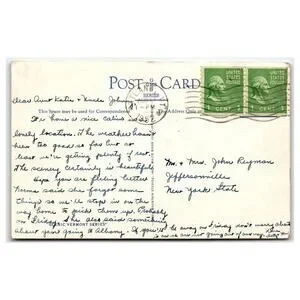 POST CARD
This space may be used for Correspondence
1 - PM
195
UNITED STATES
POSTAGE
1 CENT 1
UNITED STATES
POSTAGE
1 CENT 1
Dear Aunt Katie & Uncle Johnny,
The house is nice cabins in
lovely location. The weather hasn't
been too good so far but at
least we're getting plenty of rest.
The scenery certainly is beautiful.
Hope you are feeling better
Norma said she forgot some
things so we'll stop in on the
way home to pick them up. Probably
on Friday. She also said something
about your going to Albany. If you'll
be away on Friday don't worry about
us we are not going out of our way.
Mr. & Mrs. John Reyman
Jeffersonville
New York State
SCENIC VERMONT SERIES